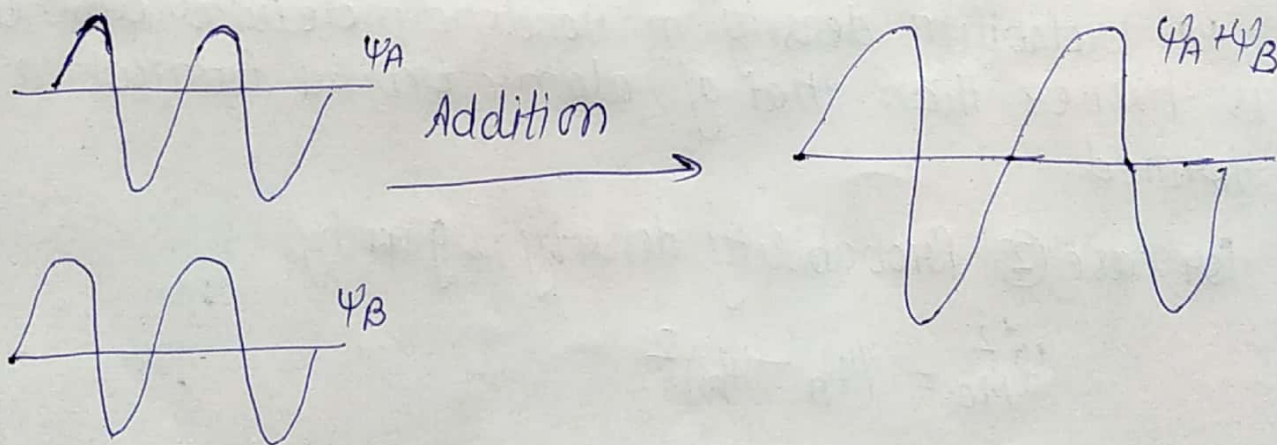 ψA
Addition
ψA+ψB
ψB